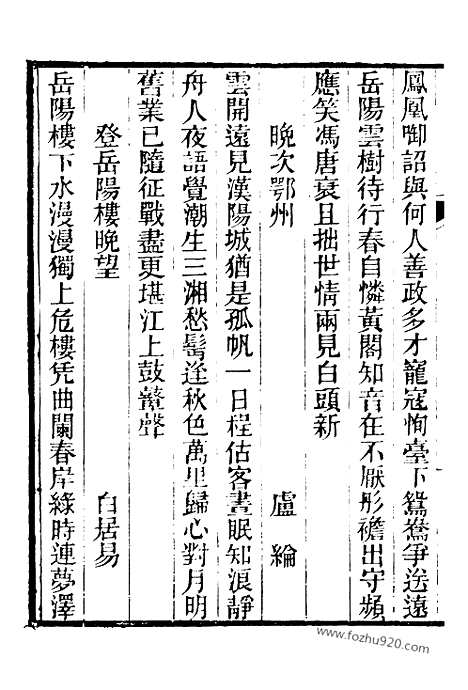 鳳凰啣詔與何人善政多才寵冠恂臺下鴛鴦爭送遠
岳陽雲樹待行春自憐黃閣知音在不厭彤襜出守頻
應笑馮唐衰且拙世情兩見白頭新
晚次鄂州　盧綸
雲開遠見漢陽城猶是孤帆一日程估客晝眠知浪靜
舟人夜語覺潮生三湘愁鬢逢秋色萬里歸心對月明
舊業已隨征戰盡更堪江上鼓鼙聲
登岳陽樓晚望　白居易
岳陽樓下水漫漫獨上危樓凭曲闌春岸綠時連夢澤
www.fozhu920.com